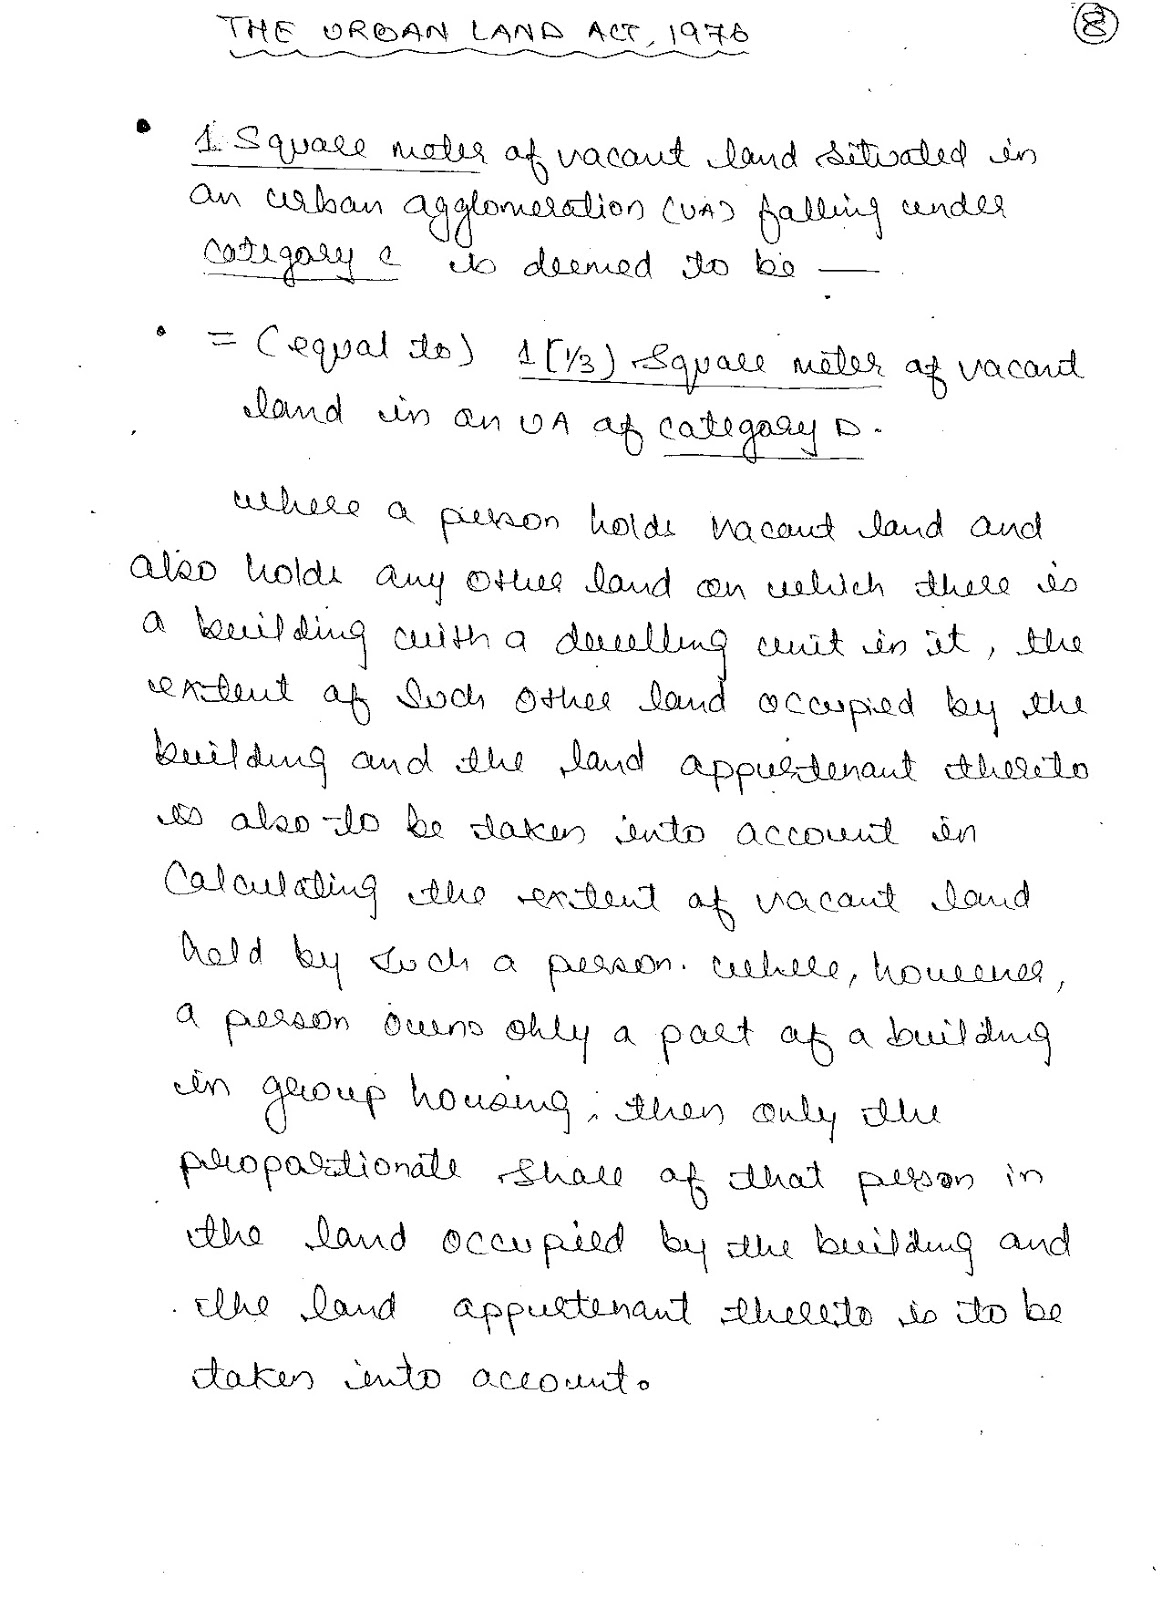 THE URBAN LAND ACT, 1976
8
• 1 Square meter of vacant land situated in
an urban agglomeration (UA) falling under
category C is deemed to be —
• = (equal to) 1 [1/3) Square meter of vacant
land in an UA of category D.
where a person holds vacant land and
also holds any other land on which there is
a building with a dwelling unit in it, the
extent of such other land occupied by the
building and the land appurtenant thereto
is also to be taken into account in
calculating the extent of vacant land
held by such a person. where, however,
a person owns only a part of a building
in group housing, then only the
proportionate share of that person in
the land occupied by the building and
the land appurtenant thereto is to be
taken into account.